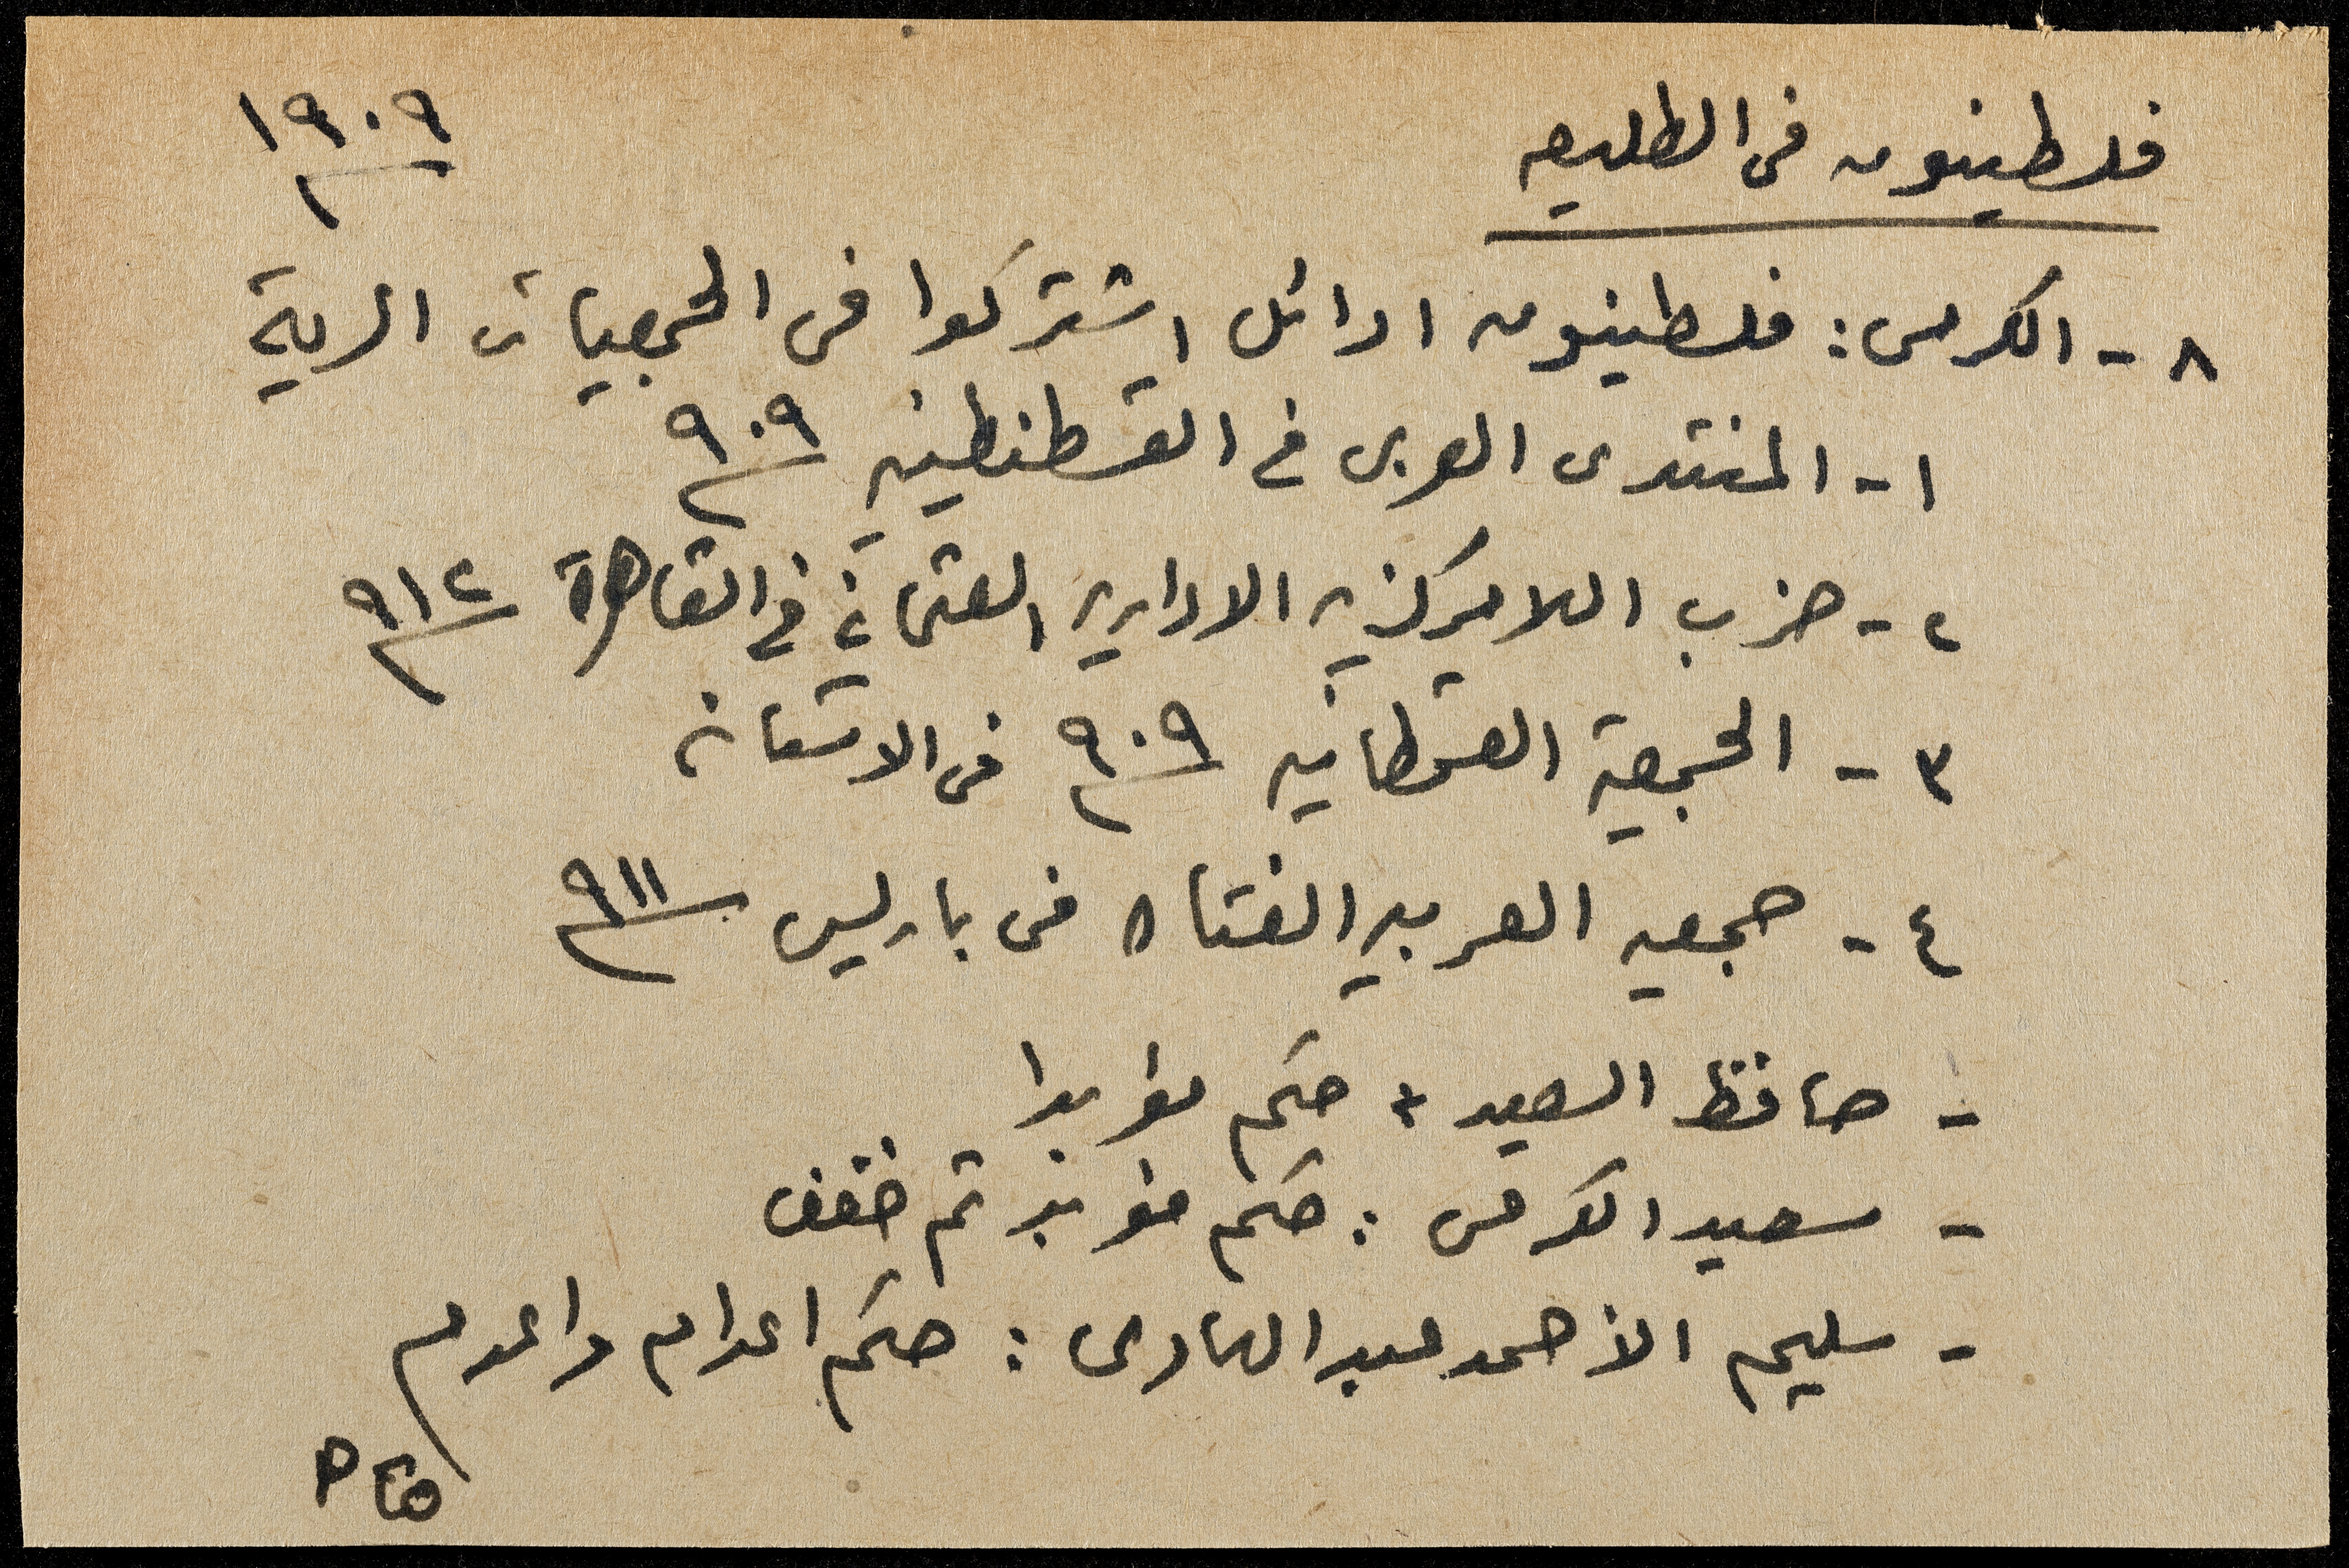 فلسطينيون في الطليعه
١٩٠٩
٨- الكرمى: فلسطينيون اوائل اشتركوا في الجمعيات السرية
١- المنتدى العربي في القسطنطينيه ٩٠٩
٢- حزب اللامركزيه الاداريه العثماني في القاهرة ٩١٢
٣- الجمعية القحطانيه ٩٠٩ في الاستانه
٤- جمعيه العربيه الفتاه في باريس ٩١١
- حافظ السعيد : حكم مؤبدا
- سعيد الكرمى : حكم مؤبد ثم خفف
- سليم الأحمد عبد الهادى : حكم اعدام واعدم